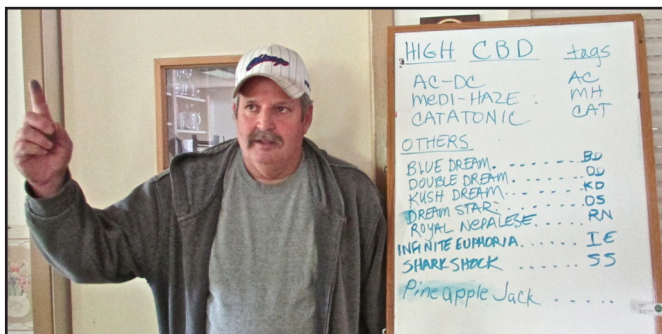 HIGH CBD tags
AC-DC AC
MEDI-HAZE : MH
CATATONIC CAT
OTHERS
BLUE DREAM. - - - - - - - BD
DOUBLE DREAM. - - - - - - DD
KUSH DREAM. - - - - - - KD
DREAM STAR. - - - - - - DS
ROYAL NEPALESE. . . . . . RN
INFINITE EUPHORIA. . . . . . IE
SHARKSHOCK . . . . . . SS
Pineapple Jack . . . . .